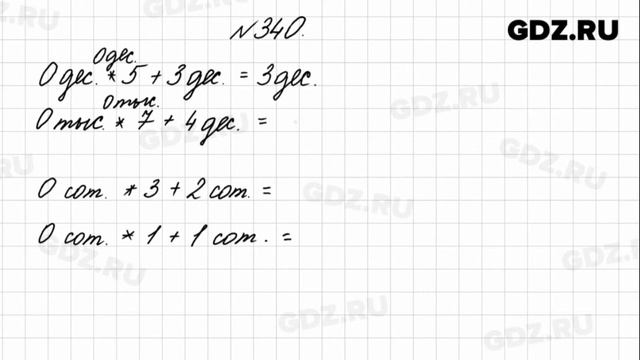 №340.
GDZ.RU
0 дес.
0 дес. * 5 + 3 дес. = 3 дес.
0 тыс.
0 тыс. * 7 + 4 дес. =
0 сот. * 3 + 2 сот. =
0 сот. * 1 + 1 сот. =
GDZ.RU
GDZ.RU
GDZ.RU
GDZ.RU
GDZ.RU
GDZ.RU
GDZ.RU
GDZ.RU